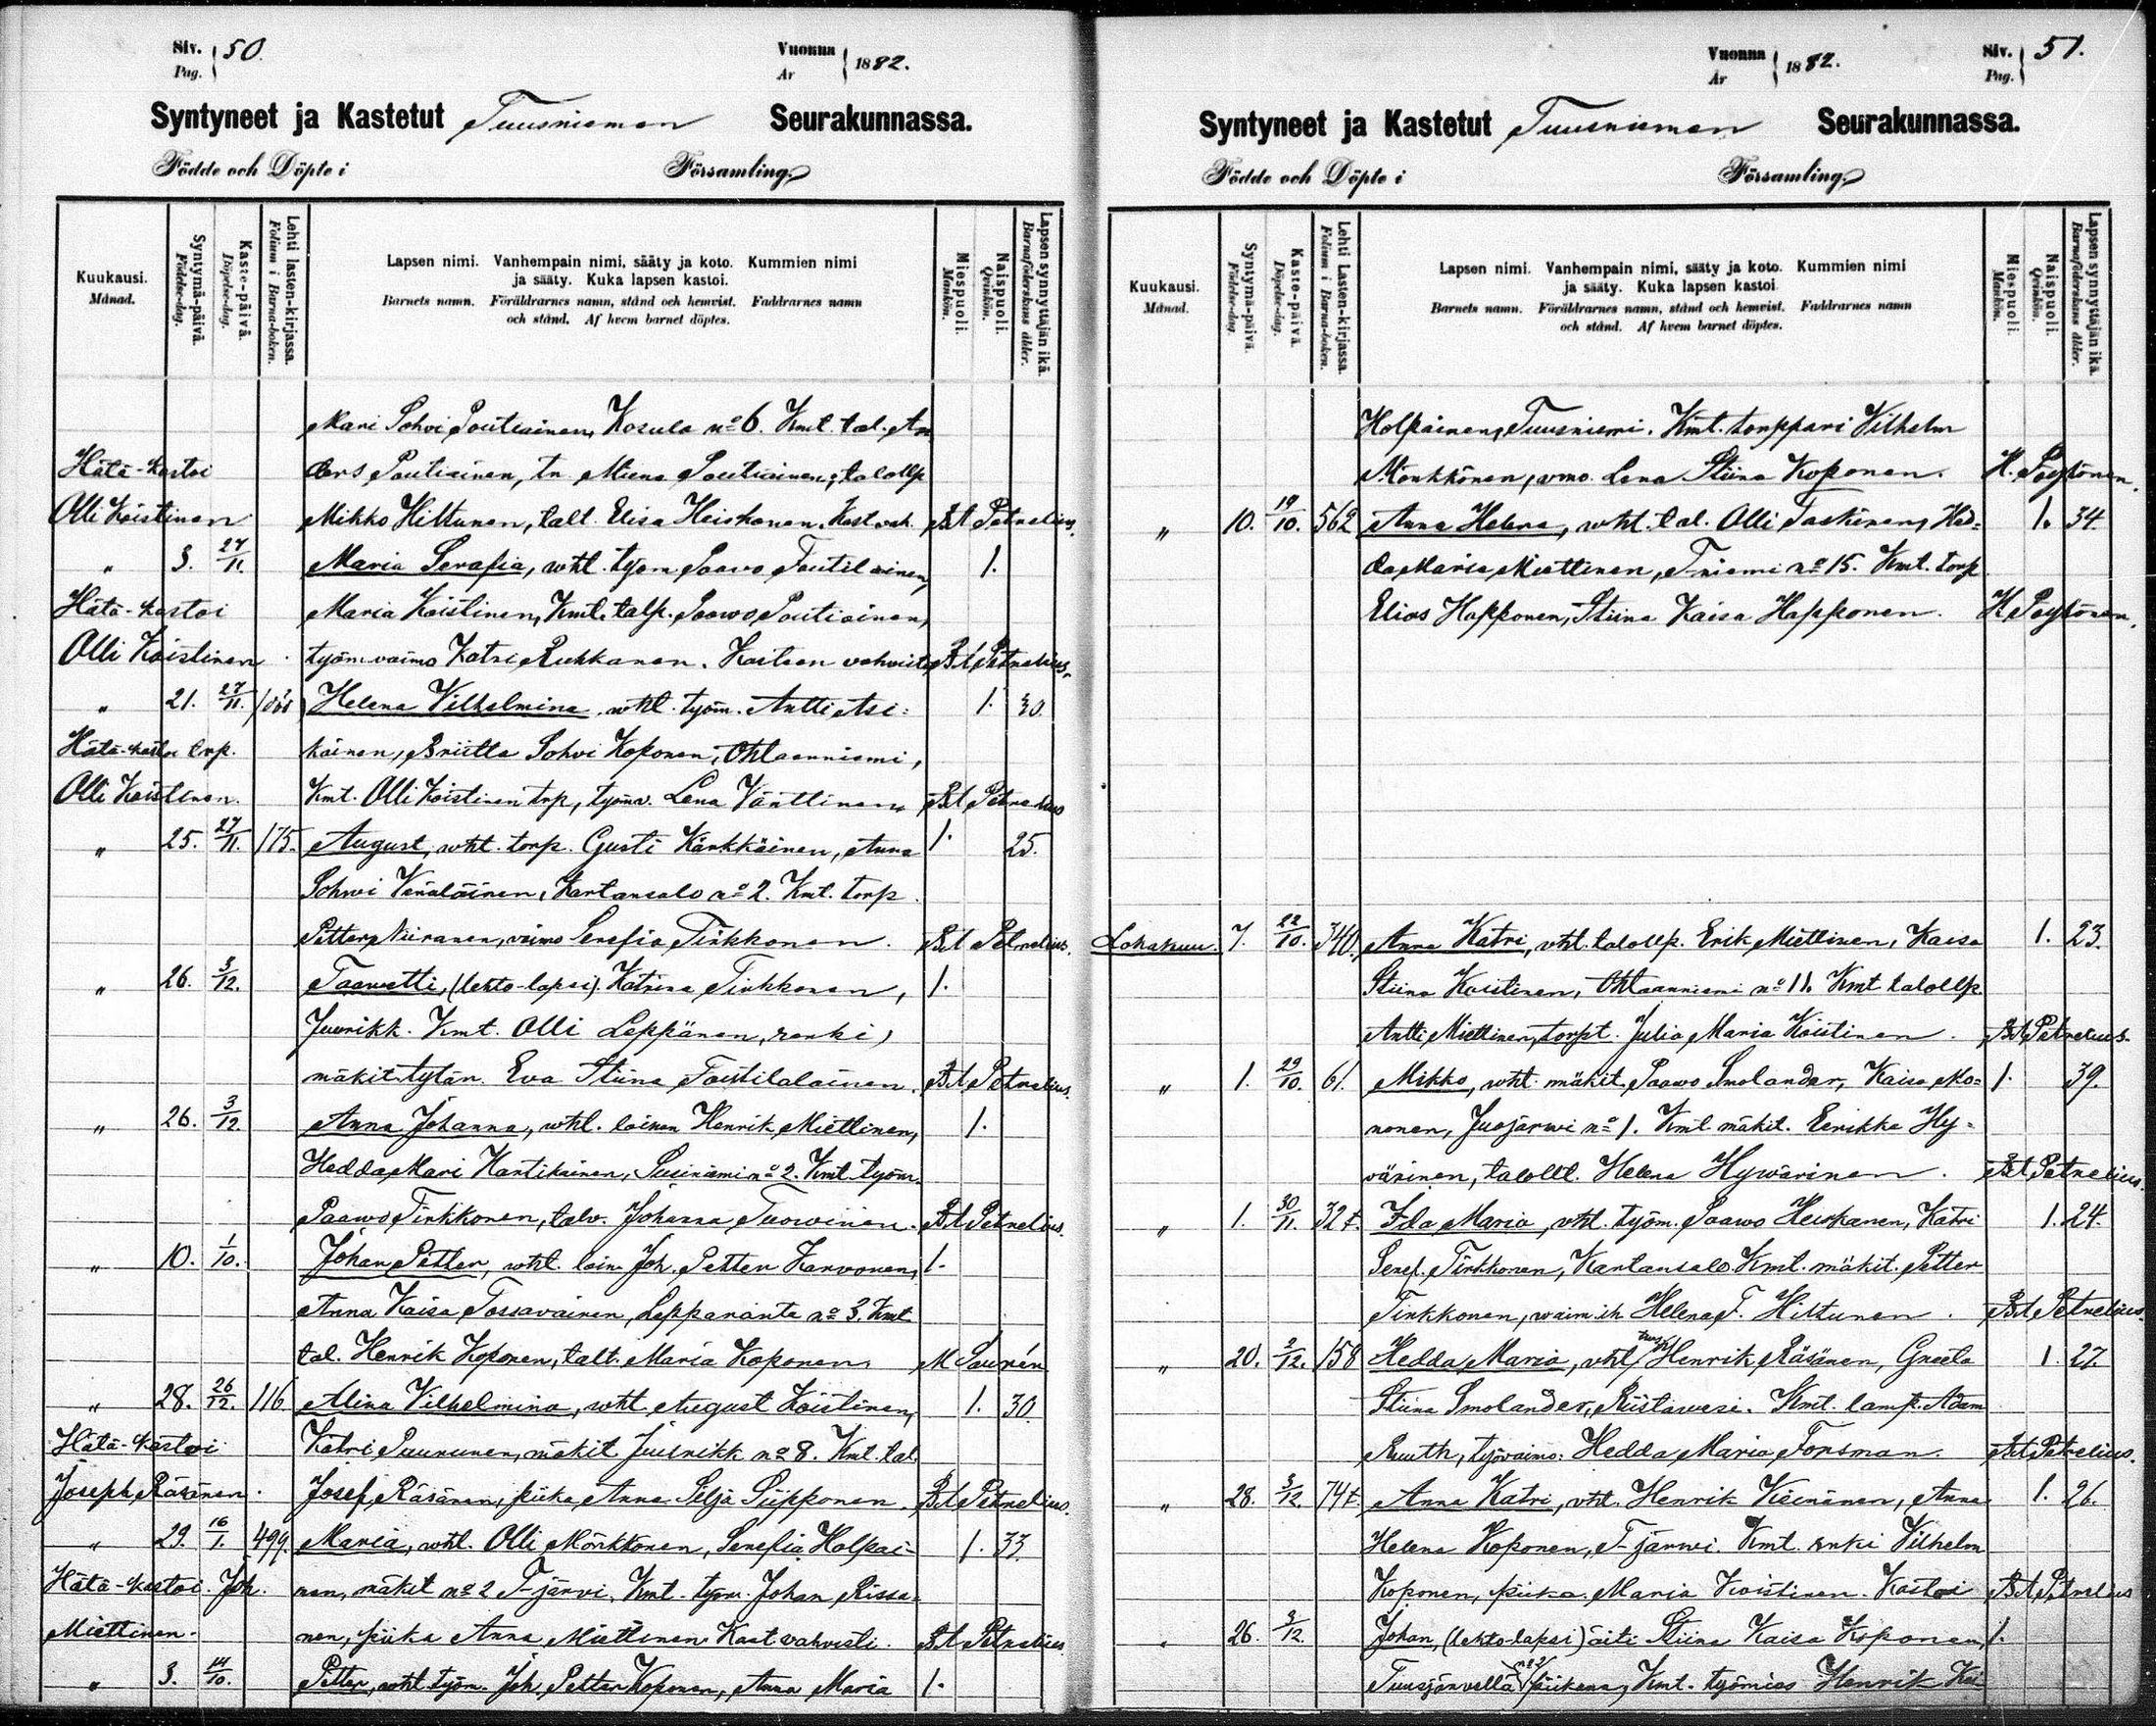 Siv. 50. Vuonna 1882.
Pag. År
Syntyneet ja Kastetut Tuusniemen Seurakunnassa.
Födde och Döpte i Församling.
Kuukausi. Månad.
Syntymä-päivä. Födelse-dag.
Kaste-päivä. Döpelse-dag.
Lehti lasten-kirjassa. Folium i Barna-boken.
Lapsen nimi. Vanhempain nimi, sääty ja koto. Kummien nimi
ja sääty. Kuka lapsen kastoi.
Barnets namn. Föräldrarnes namn, stånd och hemvist. Faddrarnes namn
och stånd. Af hvem barnet döptes.
Miespuoli. Mankön.
Naispuoli. Qvinkön.
Lapsen synnyttäjän ikä. Barnaföderskans ålder.
Mari Sohvi Poutiainen, Kosula no 6. Kmt. tal. An
Hätä-kastoi ders Poutiainen, tr. Miina Poutiainen, talollp
Olli Koistinen Mikko Hiltunen, talt. Elisa Heiskanen. Kast vah. Bt Petrelius.
" 3. 27/11. Maria Serafia, vht. työm Paavo Toutilainen, 1.
Hätä-kastoi Maria Koistinen, Kmt. talp. Paavo Poutiainen,
Olli Koistinen. työm. vaimo Katri Ruhkanen. Kasteen vahvisti Bt Petrelius.
" 21. 27/11. Helena Vilhelmina, vht. työm. Antti Asi= 1. 30.
Hätä-kastoi trp. käinen, Briitta Sohvi Koponen, Ohtaanniemi,
Olli Koistinen. Kmt. Olli Koistinen trp, työmv. Lena Vänttinen Bt Petrelius
" 25. 27/11. 175. August, vht. torp. Gusti Kärkkäinen, Anna 1. 25.
Sohvi Venäläinen, Kartansalo no 2. Kmt. torp.
Petter Niiranen, vaimo Serefia Tirkkonen. Bt Petrelius.
" 26. 3/12. Taavetti, (lehto-lapsi). Katrina Tirkkonen, 1.
Juurikk. Kmt. Olli Leppänen, renki,
mäkit. tytär. Eva Stiina Toistilalainen. Bt Petrelius.
" 26. 3/12. Anna Johanna, vht. loinen Henrik Miettinen, 1.
Hedda Mari Hartikainen, Susiniemi no 2. Kmt. työm.
Paavo Tirkkonen, talv. Johanna Tuovinen. Bt Petrelius.
" 10. 1/10. Johan Petter, vht. loin. Joh. Petter Karvonen, 1.
Anna Kaisa Tossavainen, Lepparanta no 3. Kmt.
tal. Henrik Koponen, talt. Maria Koponen M Saurén
" 28. 26/12. 116 Alina Vilhelmina, vht. August Koistinen, 1. 30.
Hätä-kastoi Katri Paununen, mäkit. Juurikk no 8. Kmt. tal.
Joseph Räsänen. Josef Räsänen, piika Anna Silja Siipponen. Bt Petrelius.
" 29. 16/1. 499. Maria, vht. Olli Mönkkönen, Serefia Holpai- 1. 33.
Hätä-kastoi Joh. nen, mäkit. no 2 T-järvi. Kmt. työm. Johan Rissa-
Miettinen. nen, piika Anna Miettinen Kast vahvisti. Bt Petrelius
" 3. 14/10. Petter, vht. työm. Joh. Petter Koponen, Anna Maria 1.
Vuonna 1882. Siv. 51.
År Pag.
Syntyneet ja Kastetut Tuusniemen Seurakunnassa.
Födde och Döpte i Församling.
Kuukausi. Månad.
Syntymä-päivä. Födelse-dag.
Kaste-päivä. Döpelse-dag.
Lehti Lasten-kirjassa. Folium i Barna-boken.
Lapsen nimi. Vanhempain nimi, sääty ja koto. Kummien nimi
ja sääty. Kuka lapsen kastoi.
Barnets namn. Föräldrarnes namn, stånd och hemvist. Faddrarnes namn
och stånd. Af hvem barnet döptes.
Miespuoli. Mankön.
Naispuoli. Qvinkön.
Lapsen synnyttäjän ikä. Barnaföderskans ålder.
Holpainen, Tuusniemi. Kmt. torppari Vilhelm
Mönkkönen, vmo. Lena Stiina Koponen. H. Pöyhönen.
" 10. 19/10. 562 Anna Helena, vht. tal. Olli Taskinen, Hed= 1. 34.
da Maria Miettinen, T niemi no 15. Kmt. torp
Elias Happonen, Stiina Kaisa Happonen. H. Pöyhönen.
Lokakuu. 7. 22/10. 340. Anna Katri, vht. talollp. Erik Miettinen, Kaisa 1. 23.
Stiina Koistinen, Ohtaanniemi no 11. Kmt talollp.
Antti Miettinen, torpt. Julia Maria Koistinen. Bt Petrelius.
" 1. 29/10. 61. Mikko, vht. mäkit. Paavo Smolander, Kaisa Mo= 1. 39.
nonen, Juojärwi no 1. Kmt. mäkit. Eerikka Hy=
värinen, talollt. Helena Hywärinen. Bt Petrelius.
" 1. 30/11. 32 t. Ida Maria, vht. työm. Paavo Heiskanen, Katri 1. 24.
Seref. Tirkkonen, Kartansalo. Kmt. mäkit. Petter
Tirkkonen, waim. ih Helena F. Hiltunen. Bt Petrelius.
" 20. 2/12. 158 Hedda Maria, vht. Henrik Räsänen, Greeta 1. 27.
Stiina Smolander, Riistavesi. Kmt. lamp. Adam
Ruuth, työvaimo: Hedda Maria Forsman. Bt Petrelius.
" 28. 3/12. 74 t. Anna Katri, vht. Henrik Väänänen, Anna 1. 26.
Helena Koponen, T-järwi. Kmt. renki Vilhelm
Koponen, piika Maria Koistinen. Kastoi Bt Petrelius
" 26. 3/12. Johan, (lehto-lapsi) äiti Stiina Kaisa Koponen, 1.
Tuusjärvellä no 2 piikana, Kmt. työmies Henrik Koi-